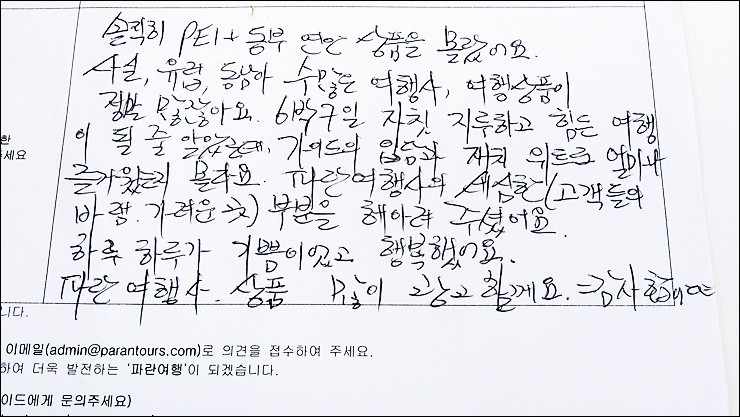 솔직히 PEI + 동부 연안 상품을 몰랐어요.
사실, 유럽, 동남아 수많은 여행사, 여행상품이
정말 많잖아요. 6박7일 자칫 지루하고 힘든 여행
이 될 줄 알았는데, 가이드의 입담과 재치 위트로 얼마나
즐거웠는지 몰라요. 파란여행사의 세심한(고객들의
바램. 가려운 곳) 부분을 헤아려 주셨어요.
하루 하루가 기쁨이었고 행복했어요.
파란 여행사. 상품 많이 광고 할게요. 감사합니다
한
주세요
니다.
이메일(admin@parantours.com)로 의견을 접수하여 주세요.
하여 더욱 발전하는 '파란여행'이 되겠습니다.
이드에게 문의주세요)